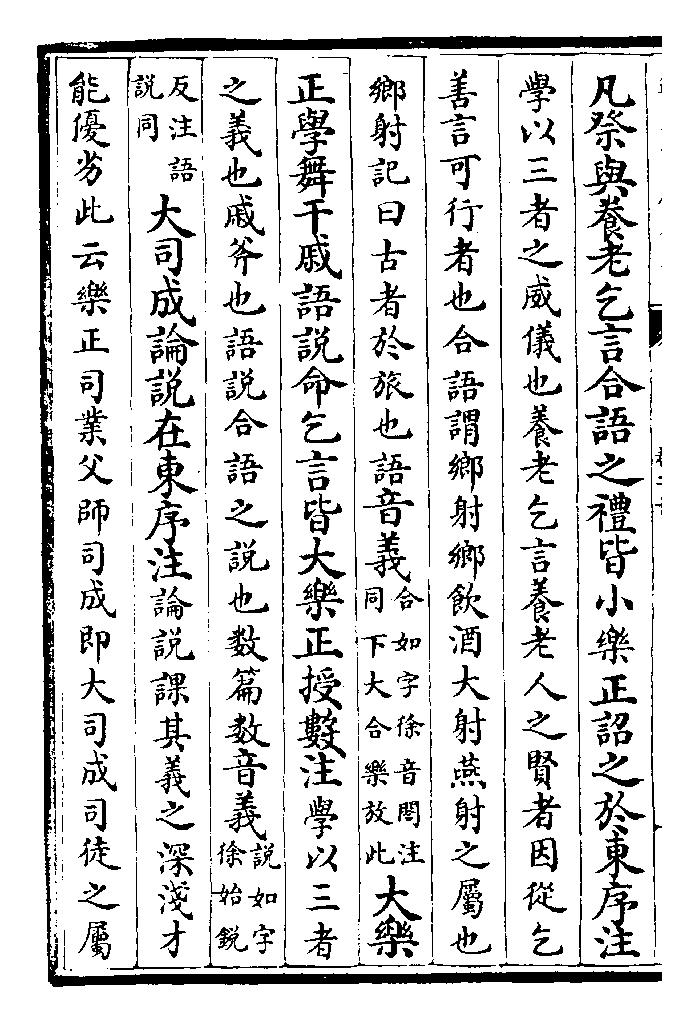 凡祭與養老乞言合語之禮皆小樂正詔之於東序注
學以三者之威儀也養老乞言養老人之賢者因從乞
善言可行者也合語謂鄉射鄉飲酒大射燕射之屬也
鄉射記曰古者於旅也語音義合如字徐音閤注同下大合樂放此大樂
正學舞干戚語說命乞言皆大樂正授數注學以三者
之義也戚斧也語說合語之說也數篇數音義說如字徐始銳
反注語說同大司成論說在東序注論說課其義之深淺才
能優劣此云樂正司業父師司成即大司成司徒之屬